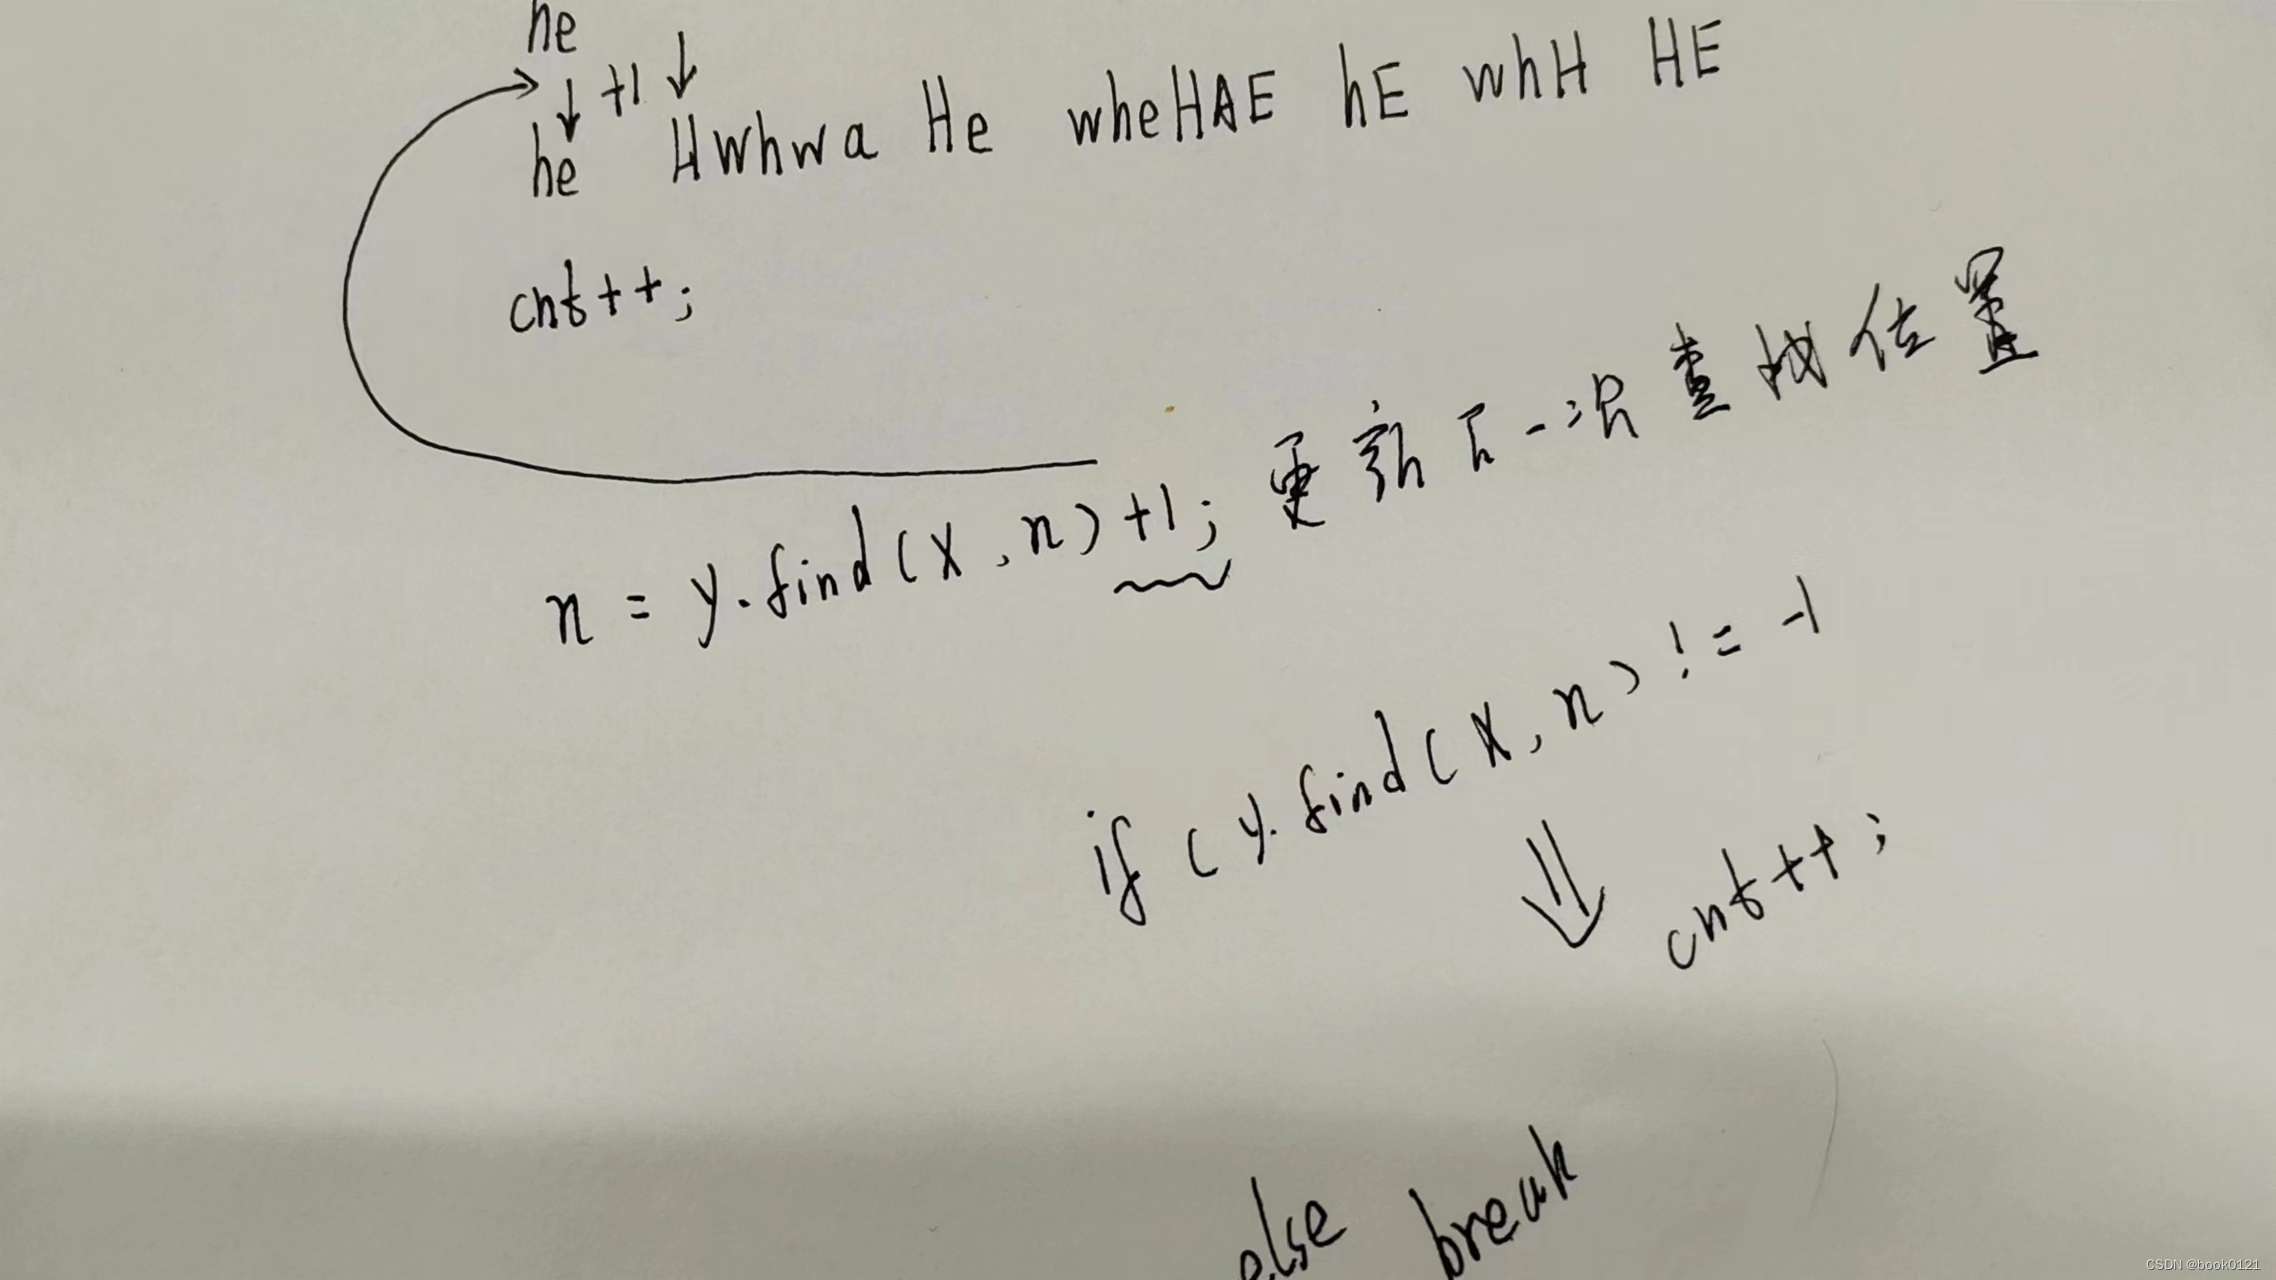 he
+1
he Hwhwa He wheHAE hE whH HE
cnt++;
n = y.find(x,n)+1; 更新下一次查找位置
if (y.find(x,n) != -1
cnt++;
else break
CSDN @book0121